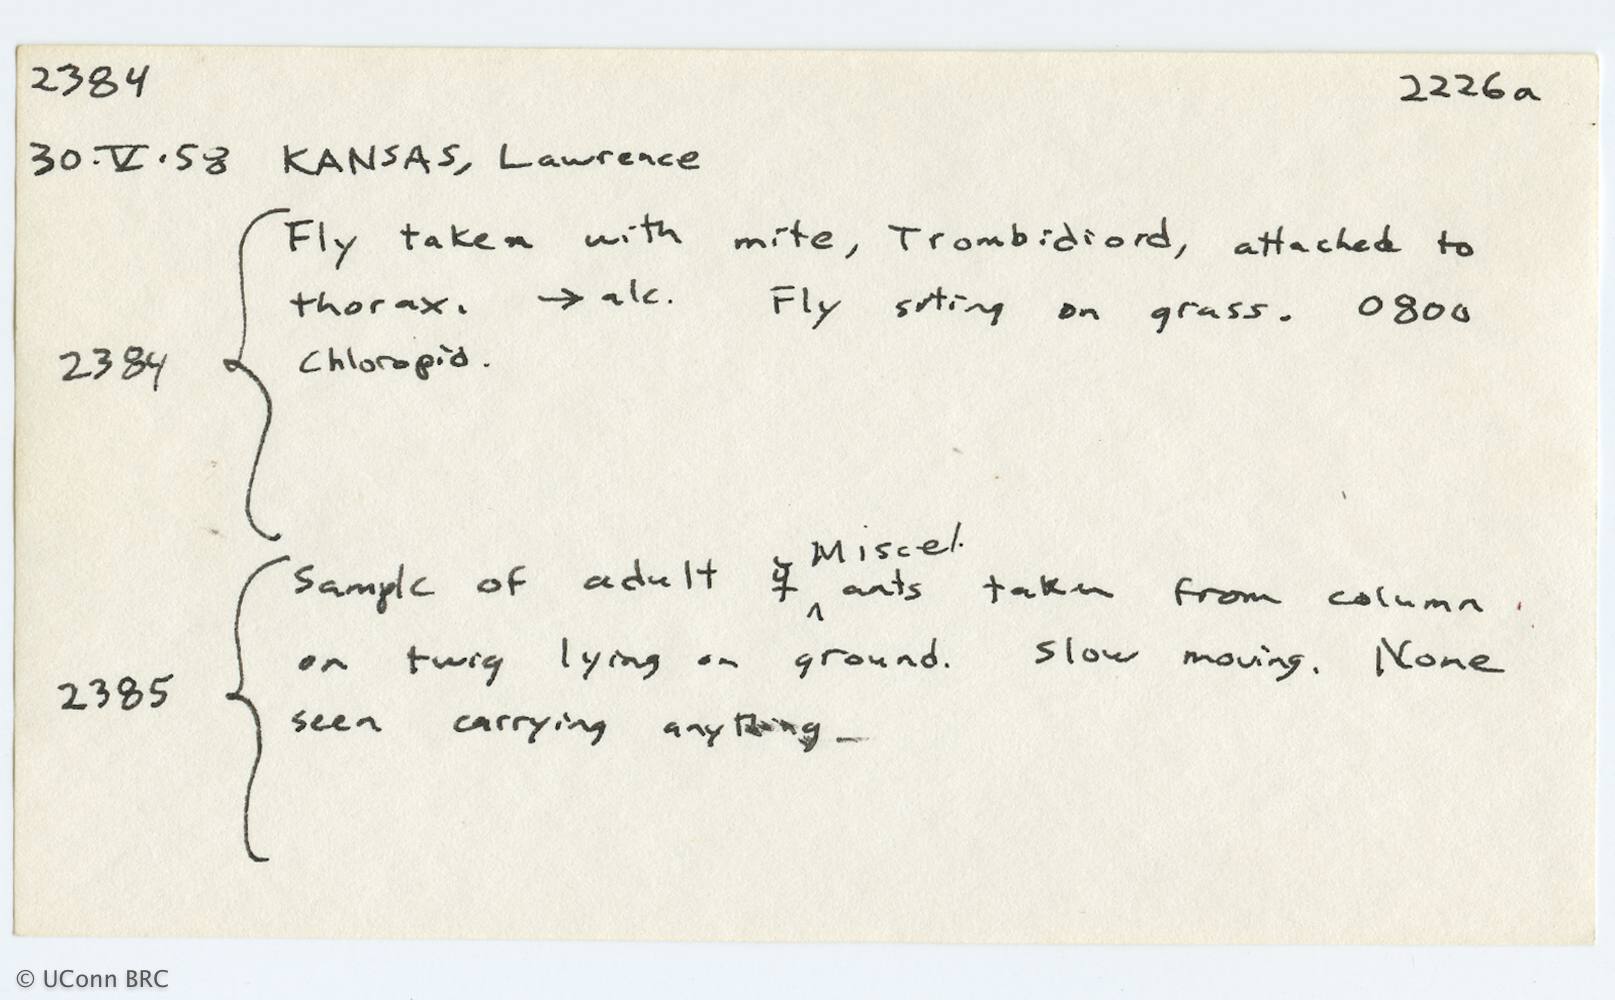 2384 2226a
30·V·58 KANSAS, Lawrence
Fly taken with mite, Trombidiord, attached to
thorax. → alc. Fly sitting on grass. 0800
2384 Chloropid.
Miscel.
Sample of adult ☿ ^ ants taken from column
on twig lying on ground. Slow moving. None
2385
seen carrying anything_
© UConn BRC